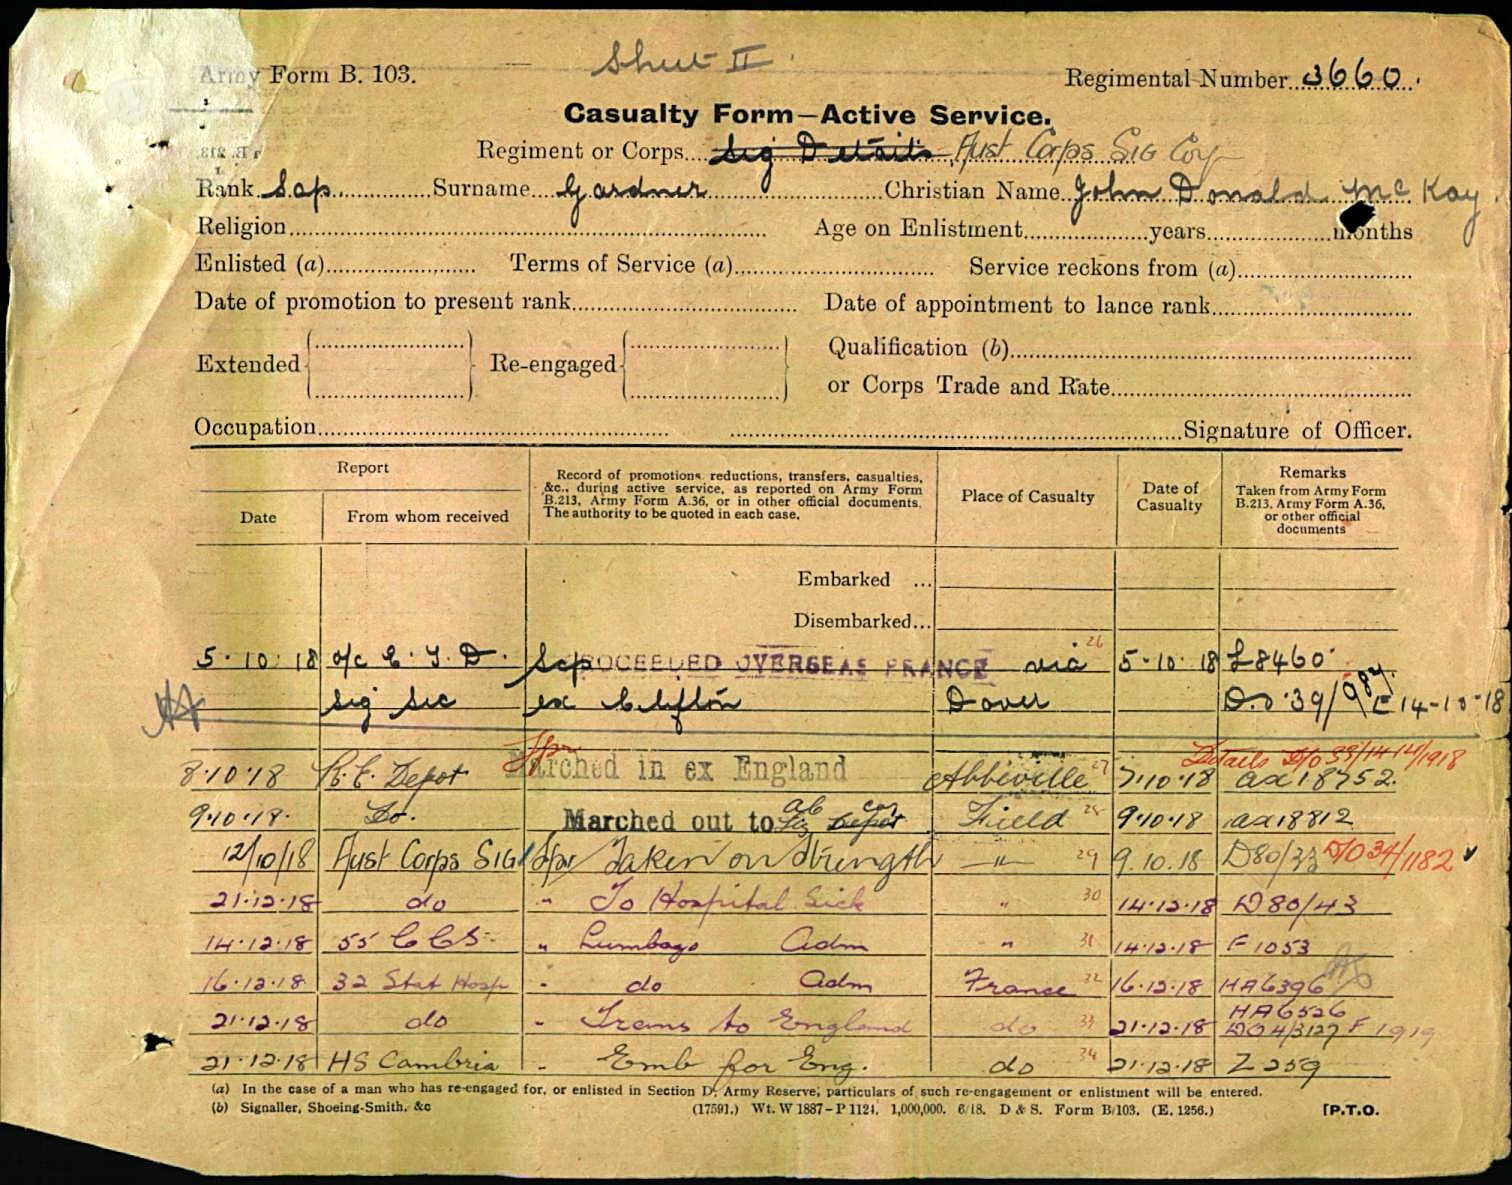 Army Form B. 103.
Sheet II
Regimental Number 3660.
Casualty Form—Active Service.
Regiment or Corps Sig Details Aust Corps Sig Coy
Rank Sap. Surname Gardner Christian Name John Donald McKay.
Religion Age on Enlistment years months
Enlisted (a) Terms of Service (a) Service reckons from (a)
Date of promotion to present rank Date of appointment to lance rank
Extended Re-engaged Qualification (b)
or Corps Trade and Rate
Occupation Signature of Officer.
Report
Date From whom received
Record of promotions, reductions, transfers, casualties,
&c., during active service, as reported on Army Form
B.213, Army Form A.36, or in other official documents.
The authority to be quoted in each case.
Place of Casualty
Date of
Casualty
Remarks
Taken from Army Form
B.213, Army Form A.36,
or other official
documents
Embarked ...
Disembarked...
5.10.18 o/c E. T. D. Sap PROCEEDED OVERSEAS FRANCE via 26 5.10.18 L8460
Sig Sec ex Clifton Dover D.O 39/987 E 14-10-18
Details D/O 39/14 14/1918
8.10.18 R.E. Depot Spr Marched in ex England Abbeville 27 7.10.18 aa18752.
9.10.18. Do. Marched out to Field 28 9.10.18 aa18812
12/10/18 Aust Corps Sig Spr Taken on Strength " 29 9.10.18 D80/33 D/O 34/1182
21.12.18 do " To Hospital Sick " 30 14.12.18 D80/43
14.12.18 55 CCS. " Lumbago Adm " 31 14.12.18 F1053
16.12.18 32 Stat Hosp " do Adm France 32 16.12.18 HA6396
21.12.18 do " Trans to England do 33 21.12.18 HA6526
DO4/3127 F 1919
21.12.18 HS Cambria " Emb for Eng. do 34 21.12.18 Z259
(a) In the case of a man who has re-engaged for, or enlisted in Section D, Army Reserve, particulars of such re-engagement or enlistment will be entered.
(b) Signaller, Shoeing-Smith, &c (17591.) Wt. W 1887-P 1124. 1,000,000. 6/18. D & S. Form B/103. (E. 1256.) [P.T.O.